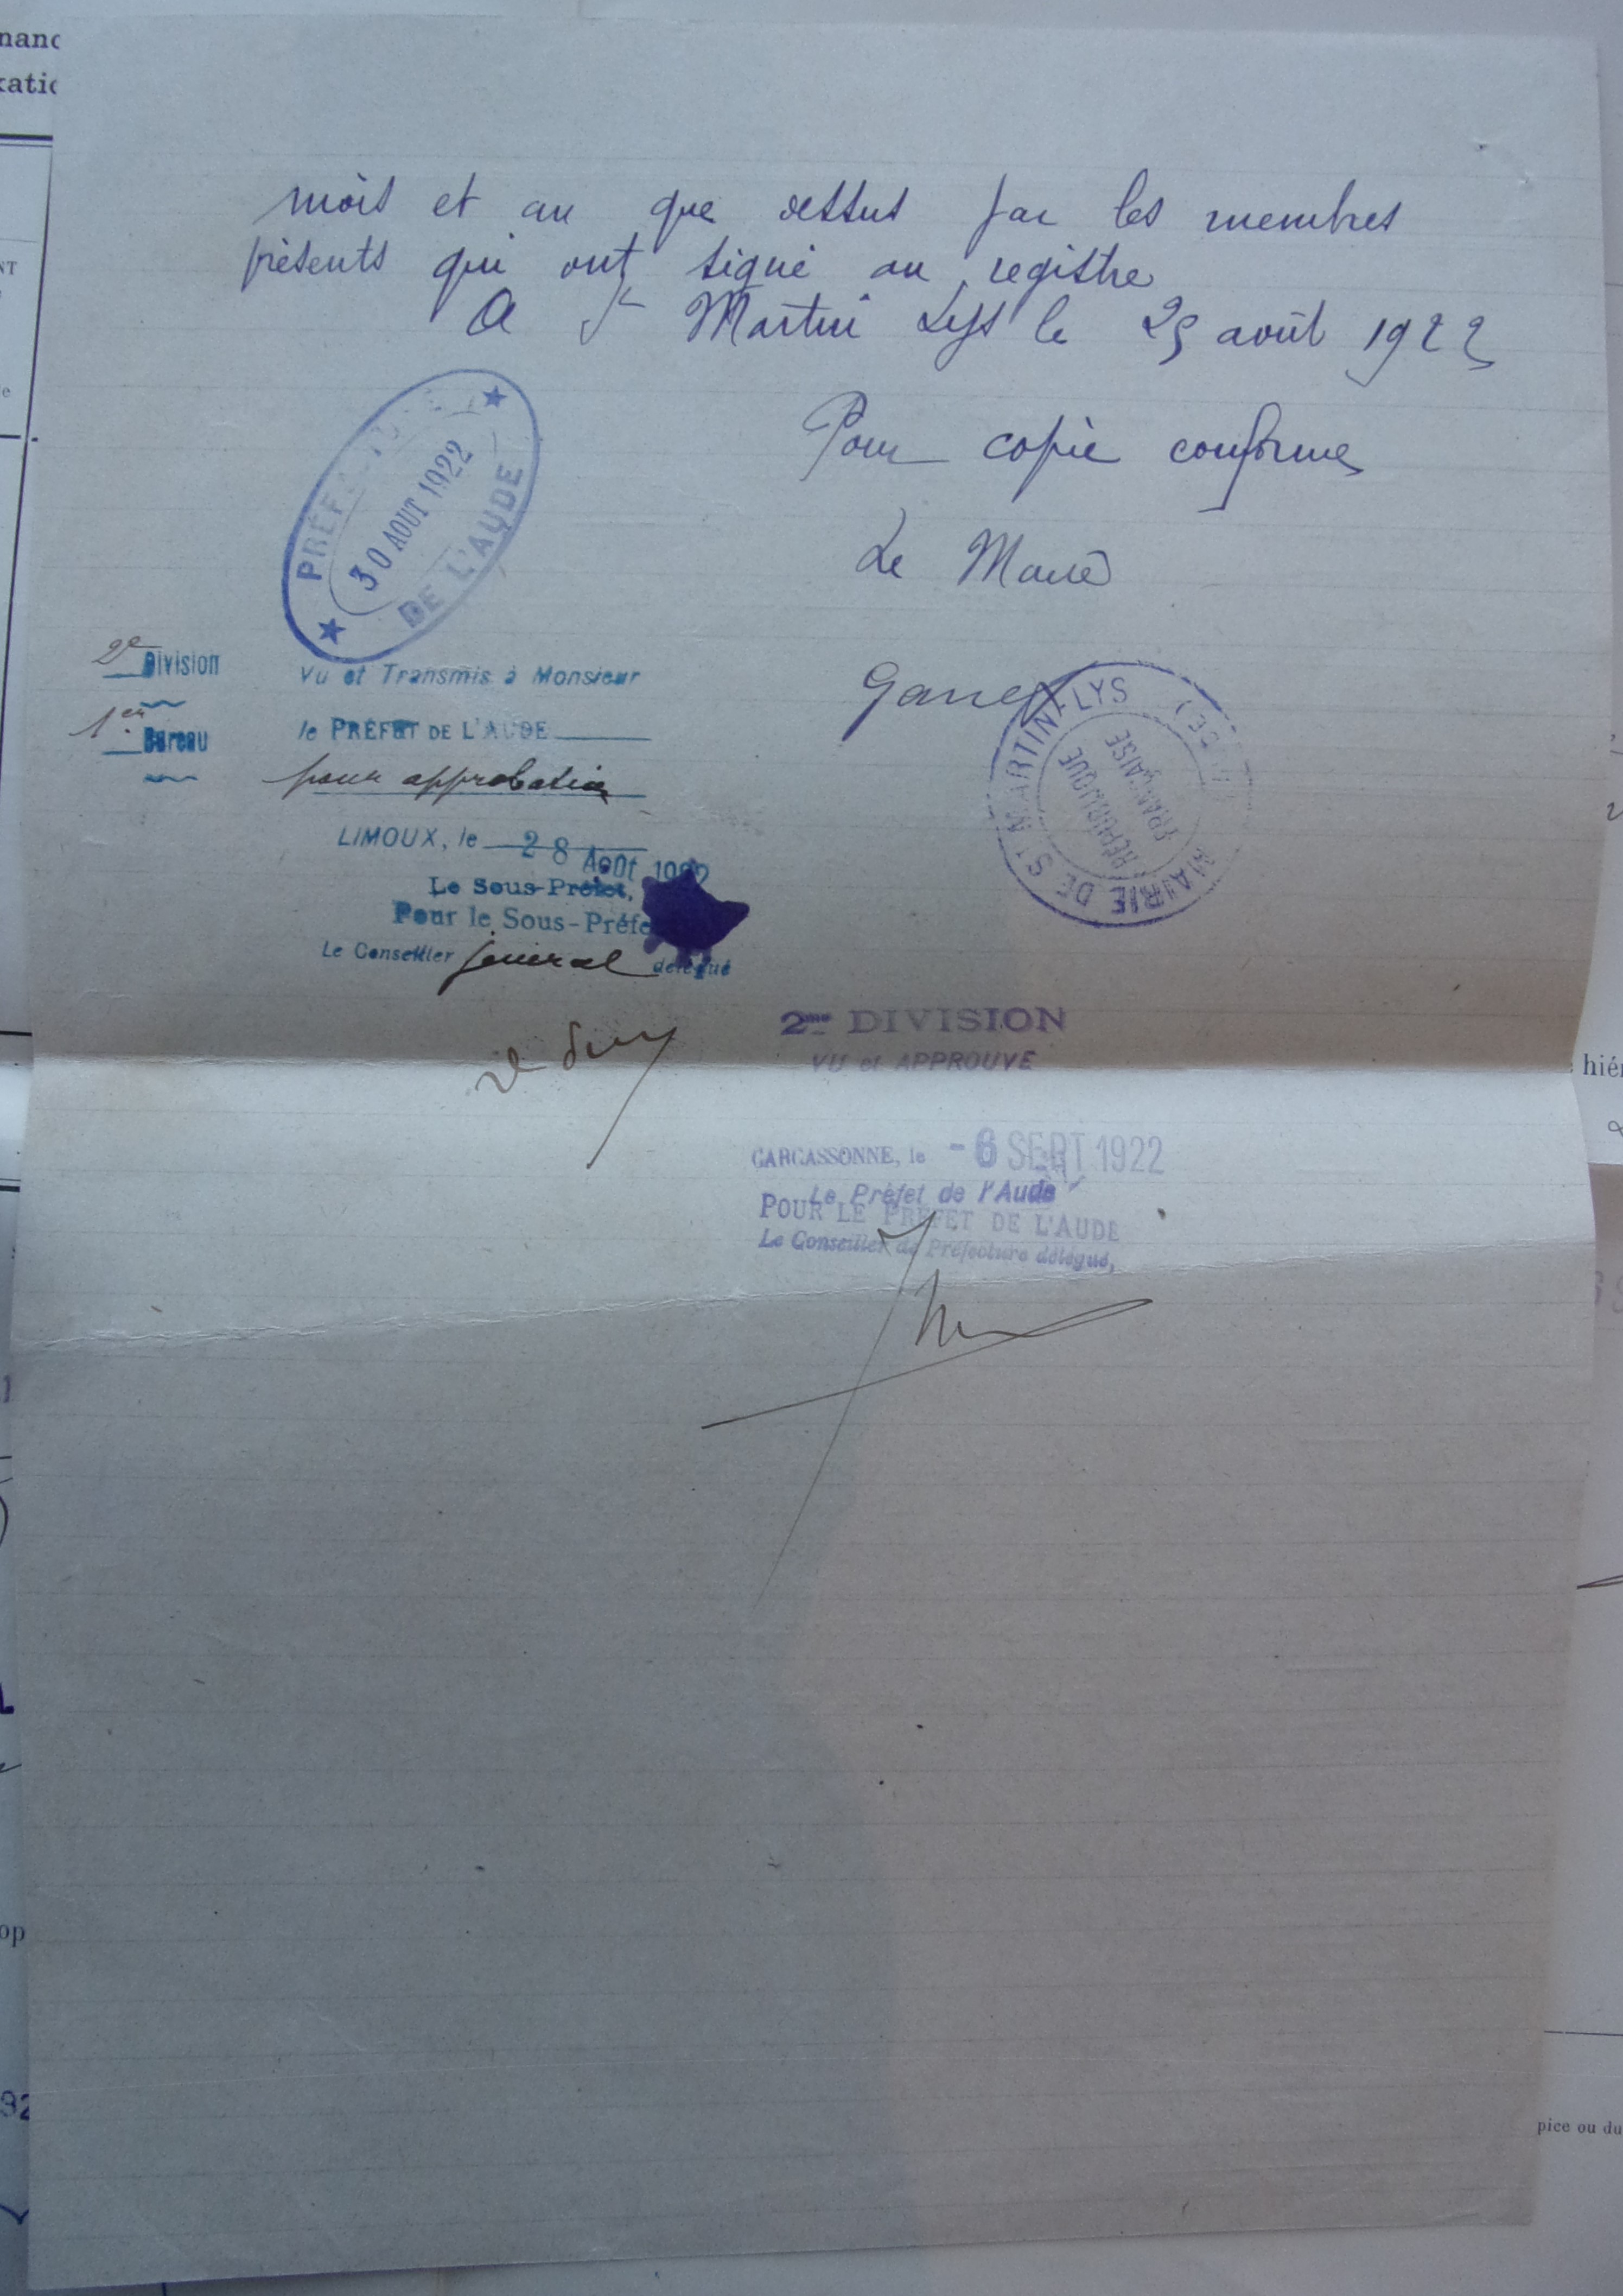 mois et an que dessus par les membres
présents qui ont signé au registre
A St Martin Lys le 25 août 1922
Pour copie conforme
Le Maire
PRÉFECTURE DE L'AUDE
30 AOUT 1922
2e Division
1er Bureau
Vu et Transmis à Monsieur
le PRÉFET DE L'AUDE
pour approbation
LIMOUX, le 28 Août 1922
Le Sous-Préfet,
Pour le Sous-Préfe
Le Conseiller général délégué
MAIRIE DE ST MARTIN-LYS
RÉPUBLIQUE
FRANÇAISE
2me DIVISION
VU et APPROUVE
CARCASSONNE, le -6 SEPT 1922
Le Préfet de l'Aude
POUR LE PRÉFET DE L'AUDE
Le Conseiller de Préfecture délégué,
hié
op
pice ou du